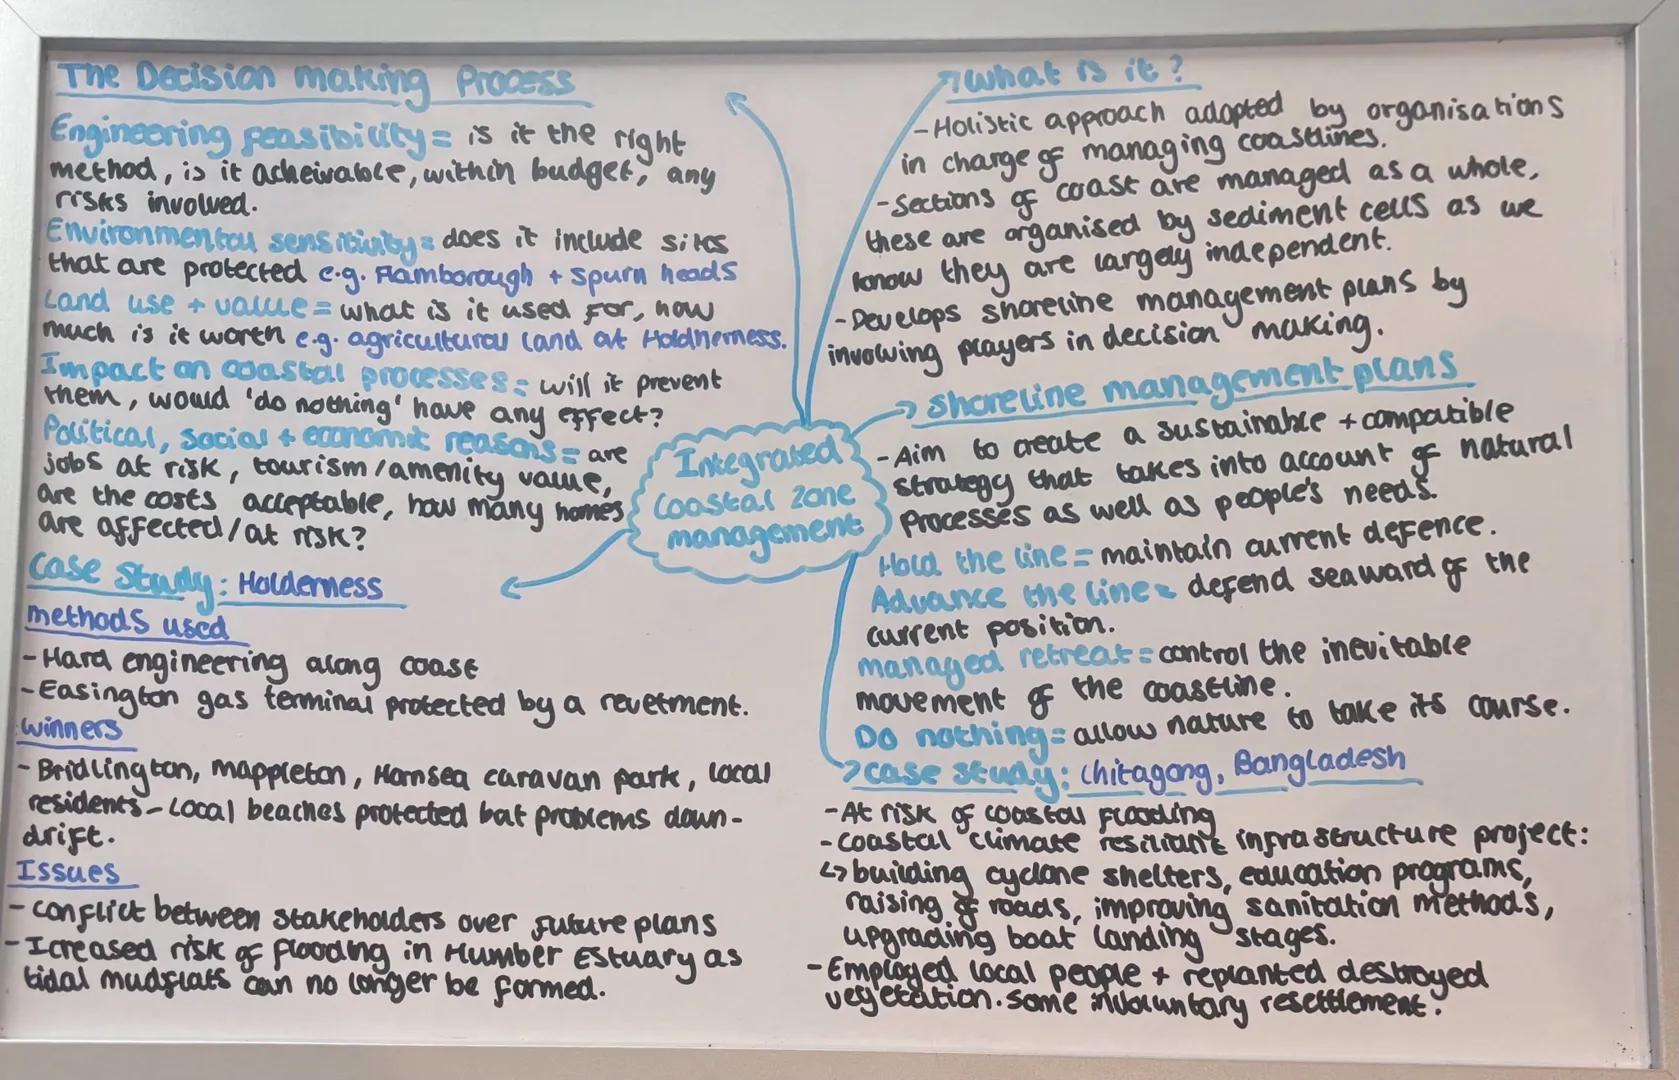 The Decision making Process
Engineering feasibility = is it the right
method, is it acheivable, within budget, any
risks involved.
Environmental sensitivity = does it include sites
that are protected e.g. Flamborough + Spurn heads
Land use + value = what is it used for, how
much is it worth e.g. agricultural land at Holdnerness.
Impact on coastal processes = will it prevent
them, would 'do nothing' have any effect?
Political, social + economic reasons = are
jobs at risk, tourism/amenity value,
are the costs acceptable, how many homes
are affected/at risk?
Case Study: Holderness
methods used
- Hard engineering along coast
- Easington gas terminal protected by a revetment.
winners
- Bridlington, mappleton, Hornsea caravan park, local
residents - Local beaches protected but problems down-
drift.
Issues
- conflict between stakeholders over future plans
- Icreased risk of flooding in Humber Estuary as
tidal mudflats can no longer be formed.
Integrated
Coastal zone
management
what is it?
- Holistic approach adopted by organisations
in charge of managing coastlines.
- Sections of coast are managed as a whole,
these are organised by sediment cells as we
know they are largely independent.
- Develops shoreline management plans by
involving players in decision making.
shoreline management plans
- Aim to create a sustainable + compatible
strategy that takes into account of natural
processes as well as people's needs.
Hold the line = maintain current defence.
Advance the line = defend seaward of the
current position.
managed retreat = control the inevitable
movement of the coastline.
Do nothing = allow nature to take its course.
case study: Chitagong, Bangladesh
- At risk of coastal flooding
- Coastal climate resiliant infrastructure project:
↳ building cyclone shelters, education programs,
raising of roads, improving sanitation methods,
upgrading boat landing stages.
- Employed local people + replanted destroyed
vegetation. Some involuntary resettlement.